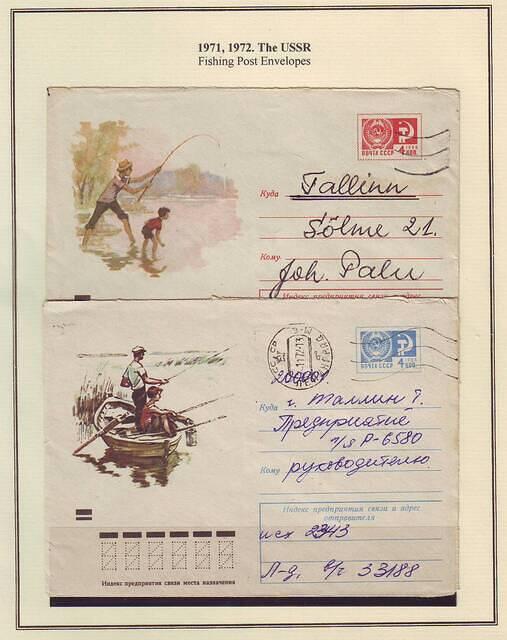 1971, 1972. The USSR
Fishing Post Envelopes
ПОЧТА СССР 4 КОП.
Куда Tallinn
Sõlme 21.
Кому
Joh. Palu
Индекс предприятия связи и адрес
ПОЧТА СССР 4
200001
Куда г. Таллин г.
Предприятие
п/я Р-6580
Кому руководителю.
Индекс предприятия связи и адрес
отправителя
исх 2343
Л-д, в/ч 33188
Индекс предприятия связи места назначения